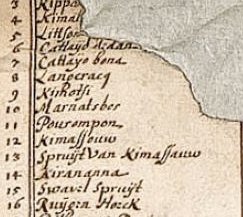 3 Kippa
4 Kimal
5 Littso
6 Cattayo Adaan
7 Cattayo bona
8 Lanocracq
9 Kihotsi
10 Marnatsbos
11 Pourompon
12 Kimassouw
13 Spruyt Van Kimassauw
14 Kirananna
15 Swavel Spruyt
16 Ruygen Hoeck